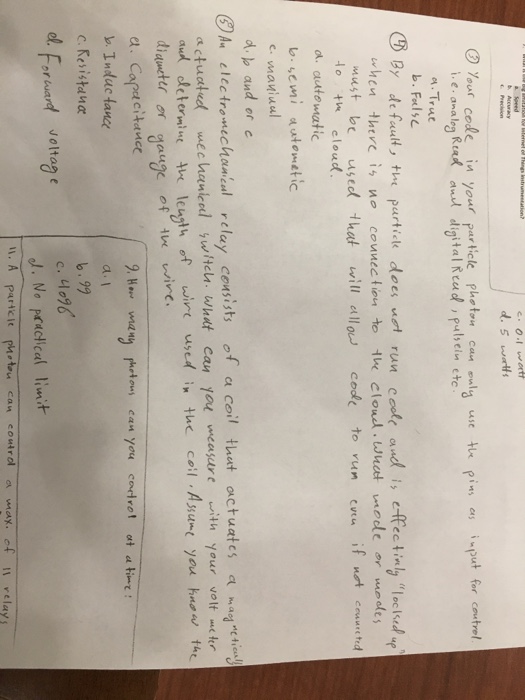 a. Speed
b. Accuracy
c. Precision
c. 0.1 watt
d. 5 watts
③ Your code in your particle photon can only use the pins as input for control.
i.e. analog Read and digital Read, pulsein etc.
a. True
b. False
④ By default, the particle does not run code and is effectinly "locked up"
when there is no connection to the cloud. What mode or modes
must be used that will allow code to run even if not connected
to the cloud.
a. automatic
b. semi automatic
c. maniual
d. b and or c
⑤ An electromechanical relay consists of a coil that actuates a magnetically
actuated mechanical switch. What can you measure with your volt meter
and determine the length of wire used in the coil. Assume you know the
diameter or gauge of the wire.
a. Capacitance
b. Inductance
c. Resistance
d. Forward voltage
9. How many photons can you control at a time:
a. 1
b. 99
c. 4096
d. No practical limit
11. A particle photon can control a max. of 11 relays